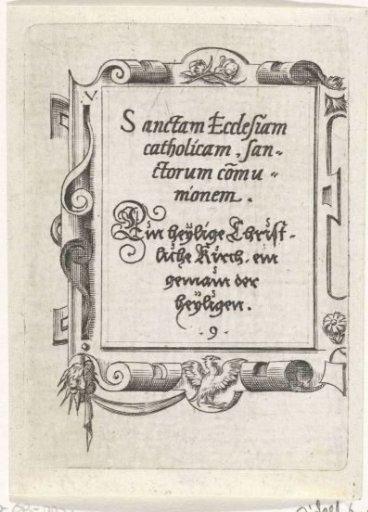 V
Sanctam Ecclesiam
catholicam, san-
ctorum cōmu-
nionem.
Ein heÿlige Christ-
liche Kirch. ein
gemain der
heÿligen.
.9.